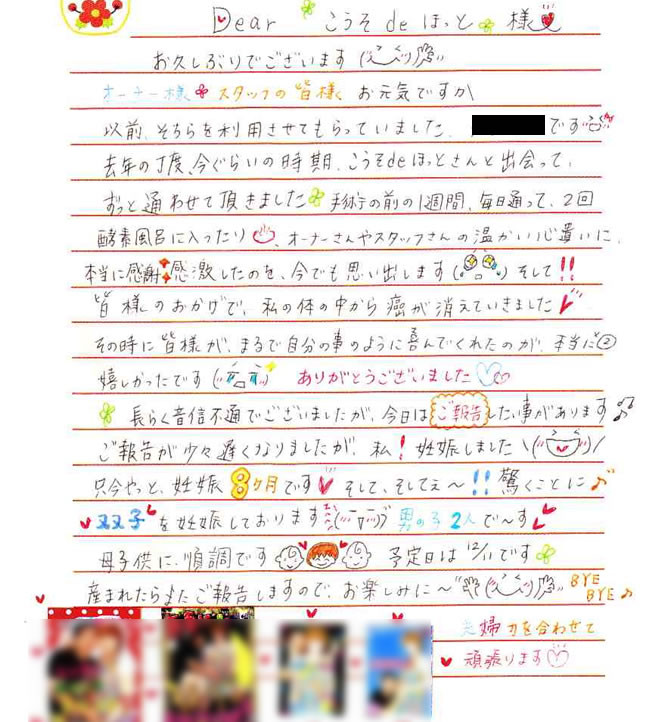 Dear こうそ de ほっと 様
お久しぶりでございます
オーナー様 スタッフの皆様 お元気ですか
以前、そちらを利用させてもらっていました、 です
去年の丁度、今ぐらいの時期、こうそdeほっとさんと出会って、
ずっと通わせて頂きました 手術の前の1週間、毎日通って、2回
酵素風呂に入ったり 、オーナーさんやスタッフさんの温かい心遣いに、
本当に感謝 感激したのを、今でも思い出します そして!!
皆様のおかげで、私の体の中から癌が消えていきました
その時に皆様が、まるで自分の事のように喜んでくれたのが、本当に②
嬉しかったです ありがとうございました
長らく音信不通でございましたが、今日はご報告したい事があります
ご報告が少々遅くなりましたが、私!妊娠しました
只今やっと、妊娠8ヶ月です そして、そしてぇ〜!!驚くことに
双子を妊娠しております 男の子2人で〜す
母子供に、順調です 予定日は12/11です
産まれたらまたご報告しますので、お楽しみに〜 BYE
BYE
夫婦力を合わせて
頑張ります